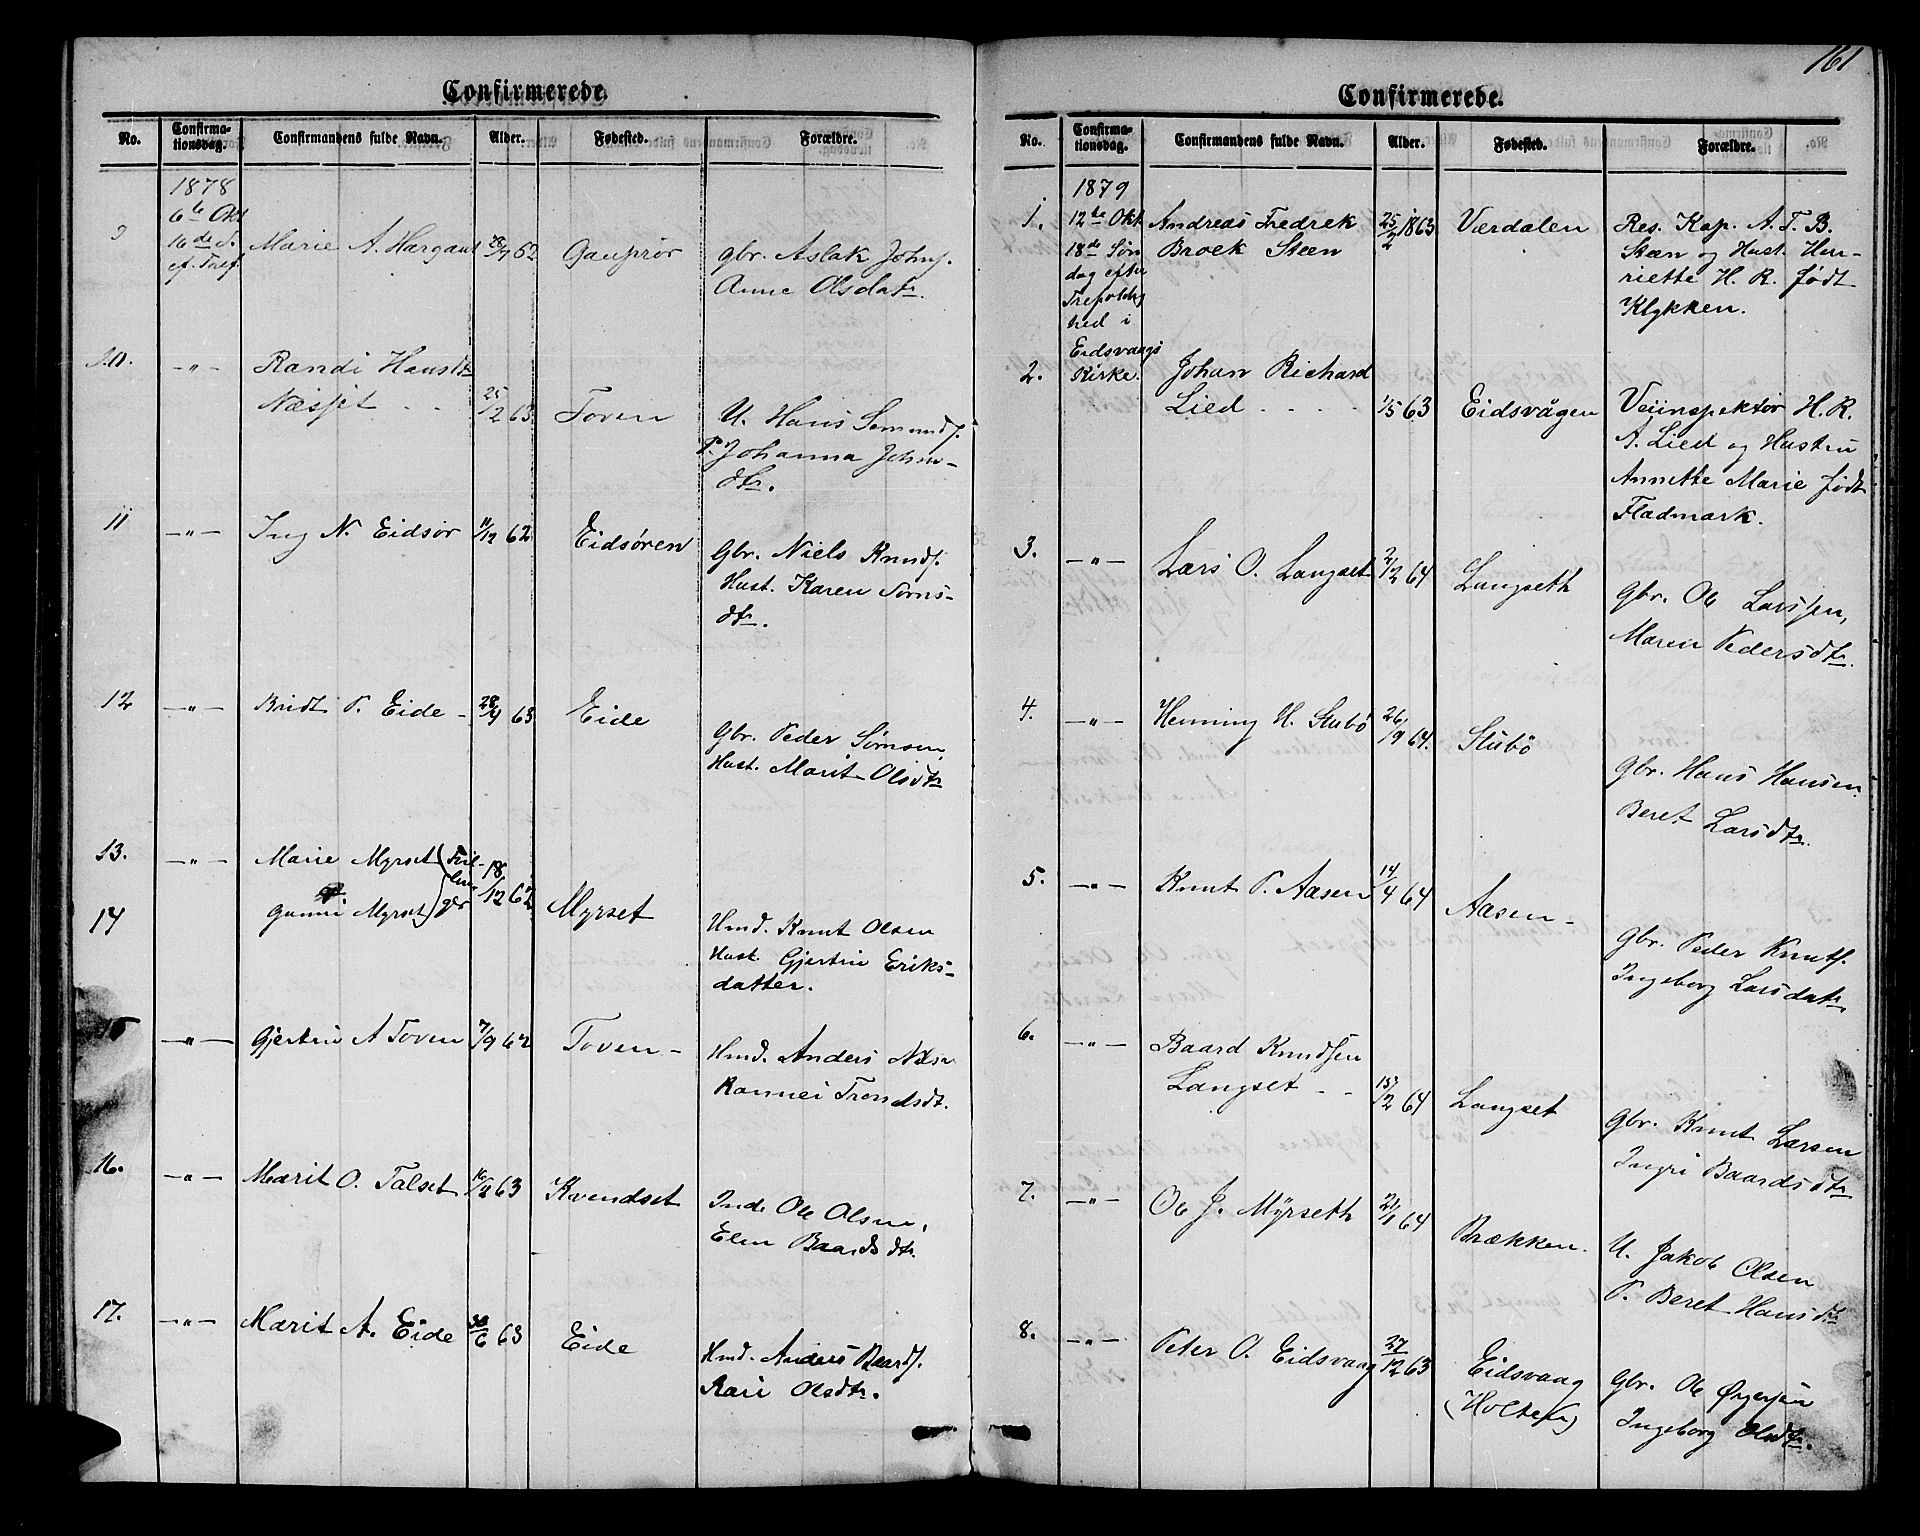 161
Confirmerede.
No. Confirma-tionsdag. Confirmandens fulde Navn. Alder. Fødested. Forældre.
1878
6te Okt
16de S.
ef. Tref.
9 Marie A. Hargaut 28/7 62 Gauprør gbr. Aslak Johns.
Anne Olsdatr.
10. -"- Randi Hansdtr
Næsset 25/12 63 Toven U. Hans
P. Johanna Johns-
dtr.
11 -"- Ing N. Eidsør 11/12 62 Eidsören Gbr. Niels Knuds.
Hust. Karen
dtr.
12 -"- Bridt P. Eide - 28/4 63 Eide Gbr. Peder
Hust. Marit Olsdtr
13. -"- Marie Myrset (Tvil- 18/12 62
lin-
14 Gunni Myrset) ger Myrset Hmd. Knut Olsen
Hust. Gjertru Eriks-
datter.
15 -"- Gjertru A Toven 7/9 62 Toven - Hmd. Anders Nilsn
Rannei Trondsdt.
16. -"- Marit O. Talset 16/2 63 Kvendset Ind. Ole Olsen,
Elen Baardsdtr.
17. -"- Marit A. Eide 30/6 63 Eide Hmd. Anders Baards.
Kari Olsdtr.
Confirmerede.
No. Confirma-tionsdag. Confirmandens fulde Navn. Alder. Fødested. Forældre.
1879
1. 12te Okt. Andreas Fredrek 25/2 1863 Værdalen Res. Kap. A. F. B.
18de Søn Brock Steen Steen og Hust. Hen-
dag efter riette H. R. født
Trefoldig Klykken.
hed i
Eidsvaags
Kirke.
2. Johan Richard
Lied . . . . 1/5 63 Eidsvågen Veiinspektør H. R.
A. Lied og Hustru
Annette Marie født
Fladmark.
3. -"- Lars O. Langset 2/2 64 Langseth gbr. Ole Larssen,
Maren Pedersdtr.
4. -"- Henning H. Stubö 26/9 64. Stubö gbr. Hans Hansen
Beret Larsdtr.
5. -"- Knut P. Aasen 14/4 64 Aasen - gbr. Peder Knuts.
Ingeborg Larsdatr.
6. -"- Baard Knudsen
Langset - - 15/2 64 Langset gbr. Knut Larsen
Ingri Baardsdtr
7. -"- Ole J. Myrseth 21/1 64 Brækken. U. Jakob Olsen
P. Beret Hansdtr
8. -"- Peter O. Eidsvaag 27/12 63 Eidsvaag Gbr. Ole
(Holten) Ingeborg Olsdtr.